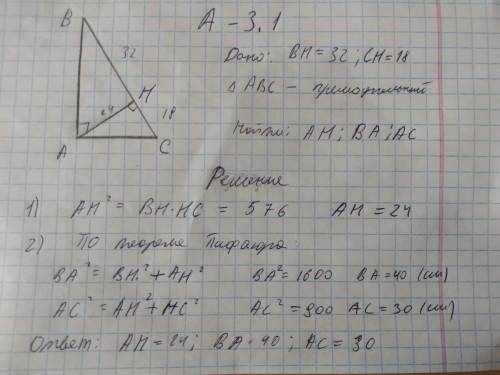 А - 3.1
B
32
H
24
18
A
C
Дано: BH = 32 ; CH = 18
Δ ABC - прямоугольный
Найти: AH ; BA ; AC
Решение
1) AH² = BH·HC = 576 AH = 24
2) По теореме Пифагора:
BA² = BH² + AH² BA² = 1600 BA = 40 (см)
AC² = AH² + HC² AC² = 900 AC = 30 (см)
Ответ: AH = 24 ; BA = 40 ; AC = 30